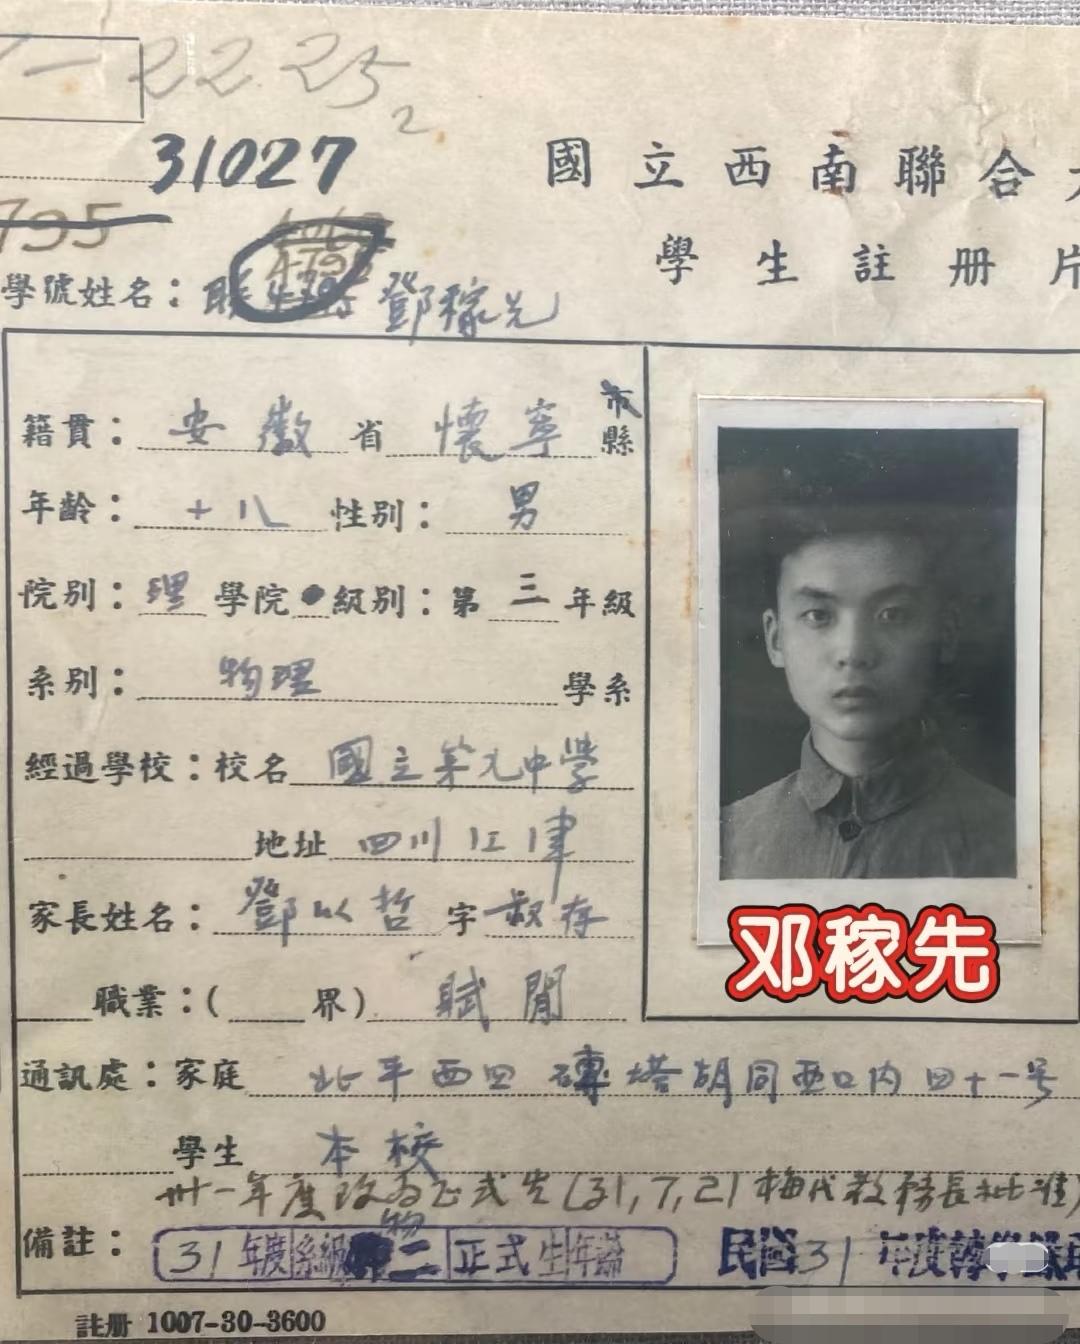 22.25
2
31027
795
國立西南聯合
學生註册片
學號姓名：聯 鄧稼先
籍貫：安徽省懷寧市縣
年齡：十八 性別：男
院別：理學院 級別：第三年級
系別：物理學系
經過學校：校名 國立第九中學
地址 四川江津
家長姓名：鄧以哲 字 叔存
職業：( 界) 賦閒
邓稼先
通訊處：家庭 北平西四磚塔胡同西口内四十一号
學生 本校
卅一年度改为正式生(31,7,21梅代教務長批准)
備註：31年度系級物二正式生年齡 民國31年度轉學
註册 1007-30-3600